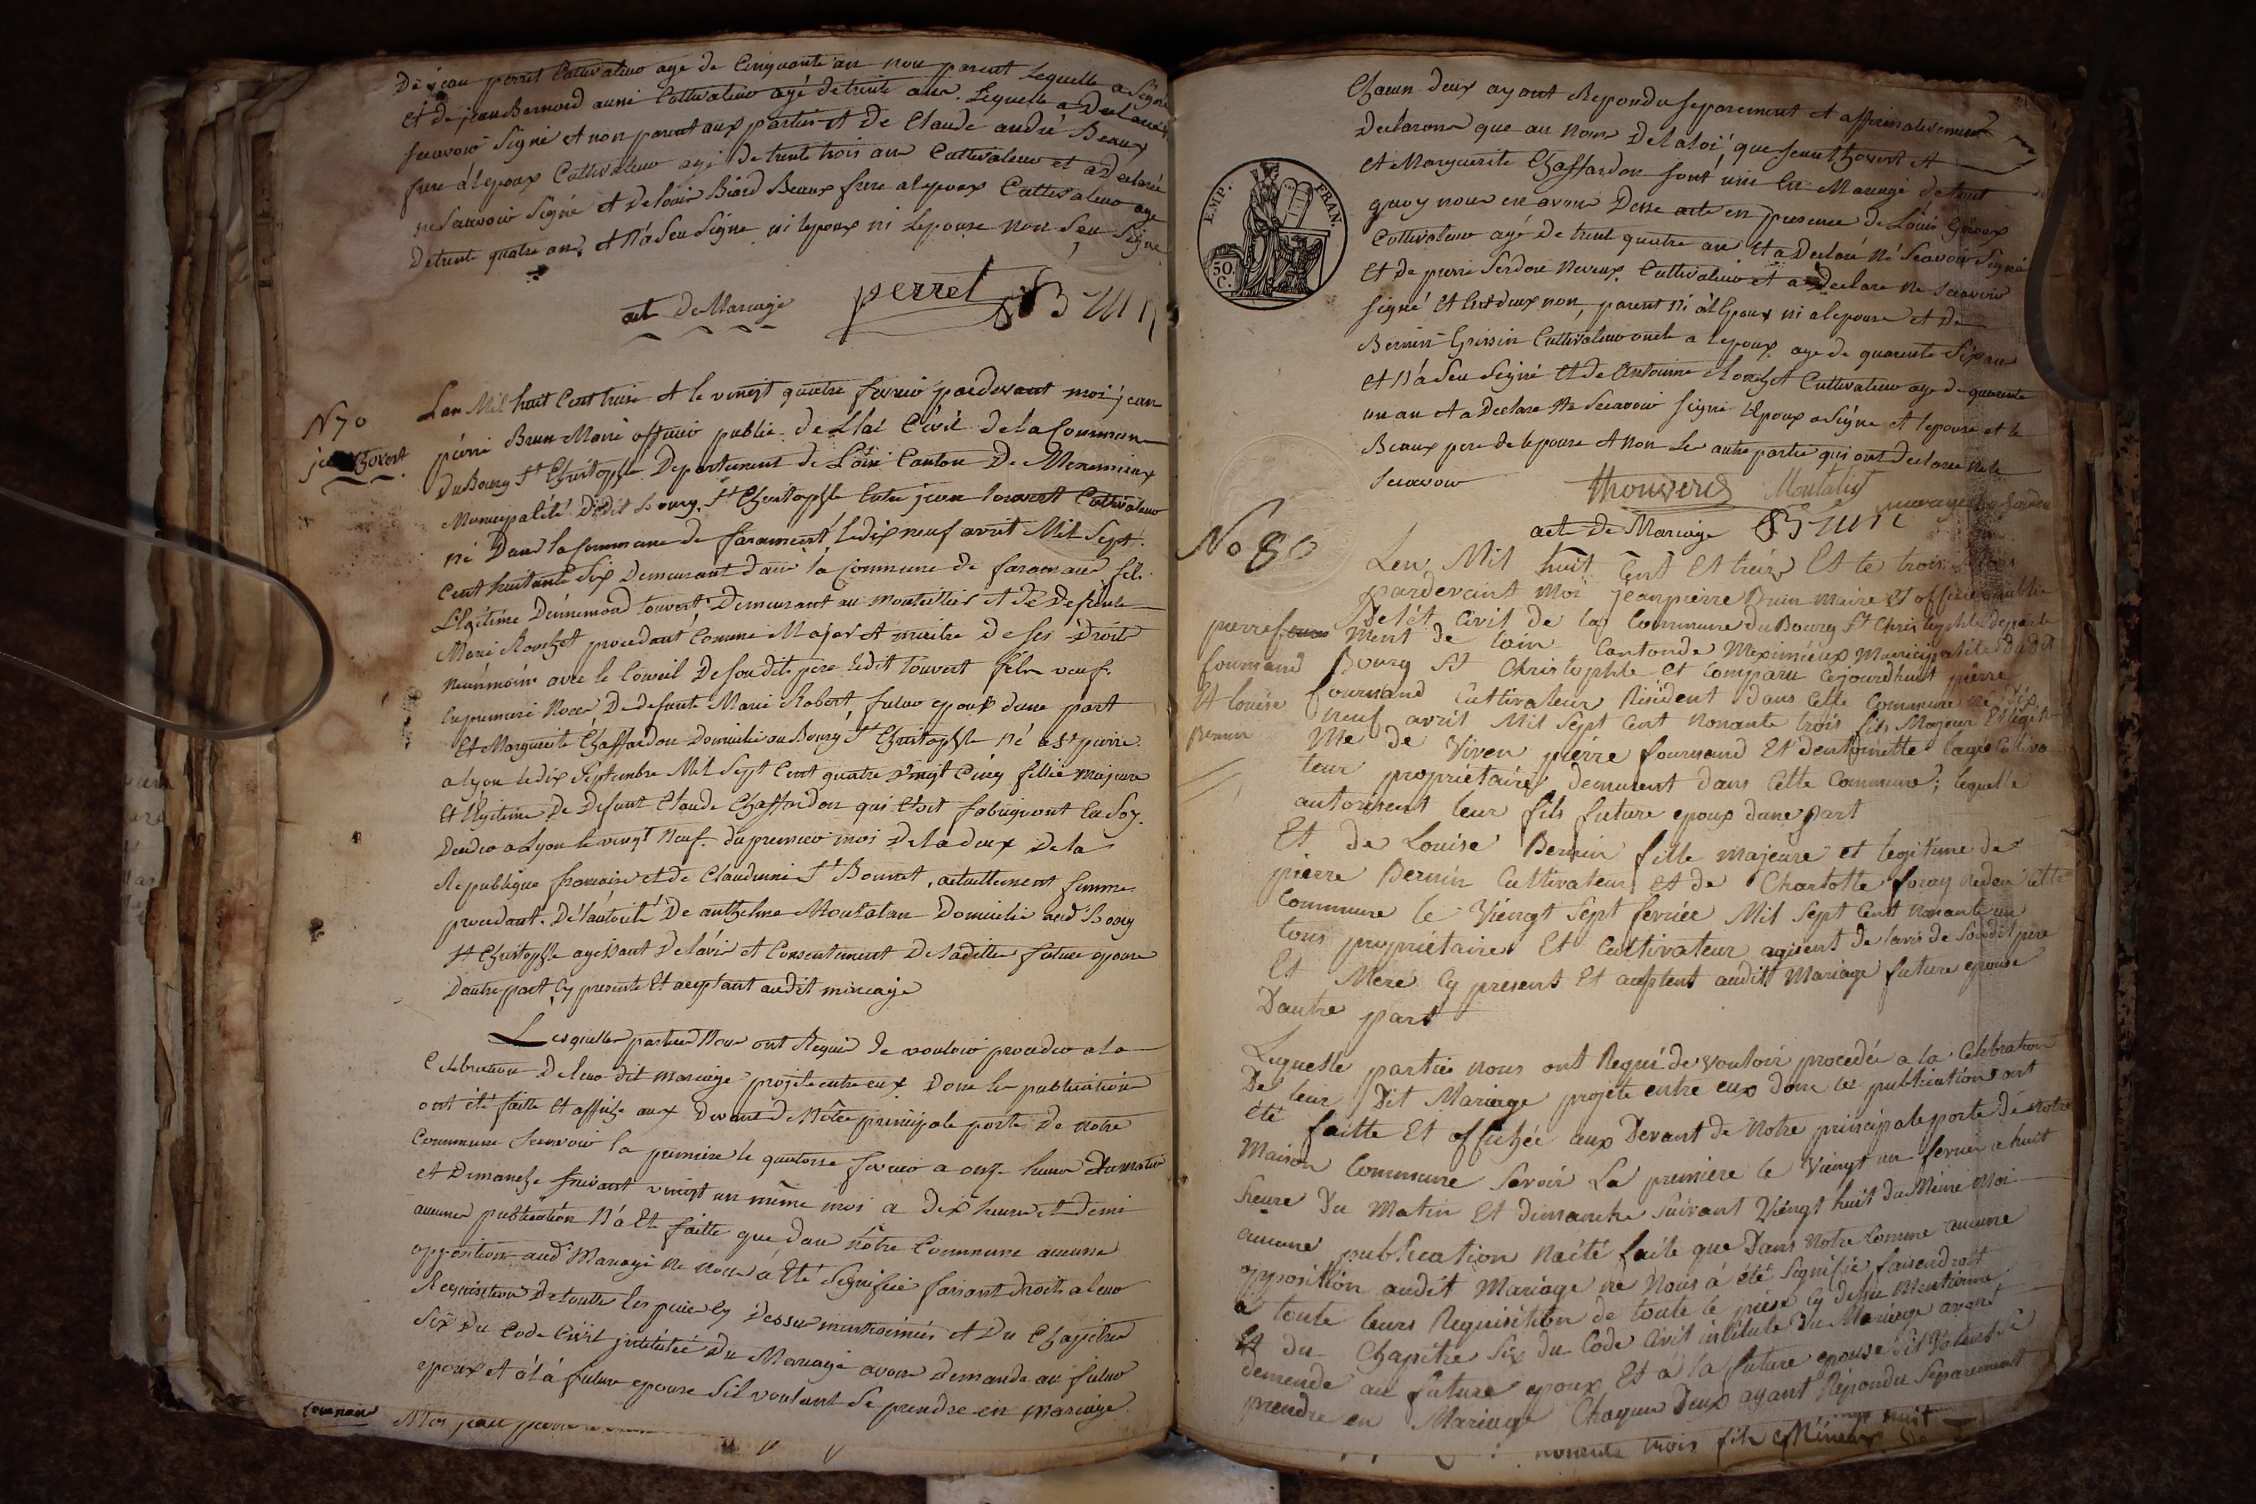 De jean perret Cultivateur agé de Cinquante an non parent lequelle a Signé
et de jean Bernard aussi Cultivateur agé de trente ans. Lequelle a Declarer
scavoir Signé et non parent aux parties et De Claude andré Beaux
frere à l'epoux Cultivateur agé de trente trois ans Cultivateur et a Declaré
ne Scavoir Signé et De louis Biard Beaux frere a lepoux Cultivateur age
De trente quatre ans, et n'a Seu Signe ni lepoux ni Lepouse non Seu Signe
perret
act De Mariage
N 70
Lan Mil huit Cent treise et le vingt quatre fevrier pardevant moi jean
pierre Brun Maire officier public De Létat Civil De la Commune
Du Bourg St Christophle Departement de L'ain Canton De Meximieux
Municipalité Dudit Bourg St Christophle Entre jean touvert Cultivateur
né Dans la Commune de faramant le dix neuf avril Mil Sept
Cent huitante Six Demeurant dans la Commune de faramant fils
Légitime Dennemond touvert Demeurant au montellier et De Defunte
Marie Rouchet procedant Comme Major et maitre De Ses Droits
neanmoins avec le Conseil De Son dit pere ledit touvert fils veuf
En premiere Noces De defunte Marie Robert futur epoux dune part
Et Marguerite Chaffardon Domiciliée au Bourg St Christophle Né a St pierre
a lyon le dix Septembre Mil Sept Cent quatre vingt Cinq fillie majeure
Et légitime De Defunt Claude Chaffardon qui Etoit fabriquant En Soy
Decede a Lyon le vingt Neuf du premier mois De la deux De la
Republique francaise et de Claudinne St Bonnet, actuellement femme
procedant De lautorité De anthelme Montalan Domicilié aud Bourg
St Christophle agissant De lavis et Consentement De Sadite future epouse
Dautre part Cy presente Et acceptant audit mariage
Lesquelles parties Nous ont Requis De vouloir proceder a la
Celebration De leur dit mariage projeté entre eux Dont les publications
ont été faitte Et affiche aux Devant De Notre principale porte De notre
Commune Scavoir la premiere le quatorse fevrier a onze heures Du matin
et Dimanche Suivant vingt un même mois a Dix heures et Demi
aucune publication N'a Eté faitte que dans nôtre Commune aucune
opposition aud Mariage Ne Nous a Eté Signifiée faisant Droits a leur
Requisition De toutte les piece Cy Dessus mentionnées et Du Chapitre
Six Du Code Civil intitulée Du Mariage avons Demandé au futur
epoux et à la future epouse Sil veulent Se prendre en mariage.
Chacun Deux ayant Repondu Separement et affirmativement
Declarons que au nom De la loi que jean thouvert et
Et Marguerite Chaffardon sont unis En Mariage de tout
quoy nous en avons Dressé acte en presence de Louis Giroux
Cultivateur agé De trente quatre an Et a Declaré Né Scavoir Signé
Et De pierre Neveux Cultivateur et a Declare Ne Scavoir
Signé et les deux non, parent ni à lepoux ni a lepouse et De
Cultivateur oncle a lepoux age de quarente Six ans
et N'a Seu Signé Et de Antoinne Cultivateur age De quarente
un an et a Declare Ne Scavoir Signe L'epoux a Signe et lepouse et le
Beaux pere de lepouse et non Les autre partie qui ont Declarer ne le
Scavoir
thouvered Montalan
act De Mariage
No 80
pierre
fournand
Et louise
Bernin
Len Mil huit Cent Et treize Et le trois Mars
pardevant Moi jean pierre Brun maire Et officier public
De lét Civil de la Commune du Bourg St Christophle departe
ment de lain Canton de Meximieux Municipalité Dudit
Bourg St Christophle Et Comparu Cejourdhuit pierre
fournand Cultivateur Résident dans Cette Commune né dix
neuf avril Mil Sept Cent Nonante trois fils Majeur Et légit
Me de Viven pierre fournand Et dentoinette Cultiva
teur propriétaires demeurent dans Cette Commune; lequelle
autorisent leur fils future epoux dune part
Et de Louise Bernin fille majeure et legitime de
pierre Bernin Cultivateur et de Charlotte foray Né den Cette
Commune le Viengt Sept fevrier Mil Sept Cent Nonante un
tous propriétaires Et Cultivateur agisent de lavis de Son dit pere
Et Mere Cy present Et aceptent audit Mariage future epouse
Dautre part
Lequelle parties nous ont Requé de Vouloir procedée a la Celebration
De leur Dit Mariage projete entre eux dont les publications ont
été faitte Et affichée aux Devant de Notre principale porte de Notre
Maison Commune Savoir La premiere le Viengt un fevrier a huit
heure Du Matin Et dimanche Suivant Viengt huit du Même Moi
aucune publication Naété faite que Dans Notre Comme aucune
opposition audit Mariage ne Nous à été Signifié faisendroit
a toute leurs Requisition de toute le piese Cy desu Mentionne
Et du Chapitre Six du Code Civil intitulé Du Mariage avons
demende au future epoux Et a la future epouse Sil Volent Se
prendre en Mariage Chaqun Deux ayant Repondu Separement
nonente trois fils Mineur